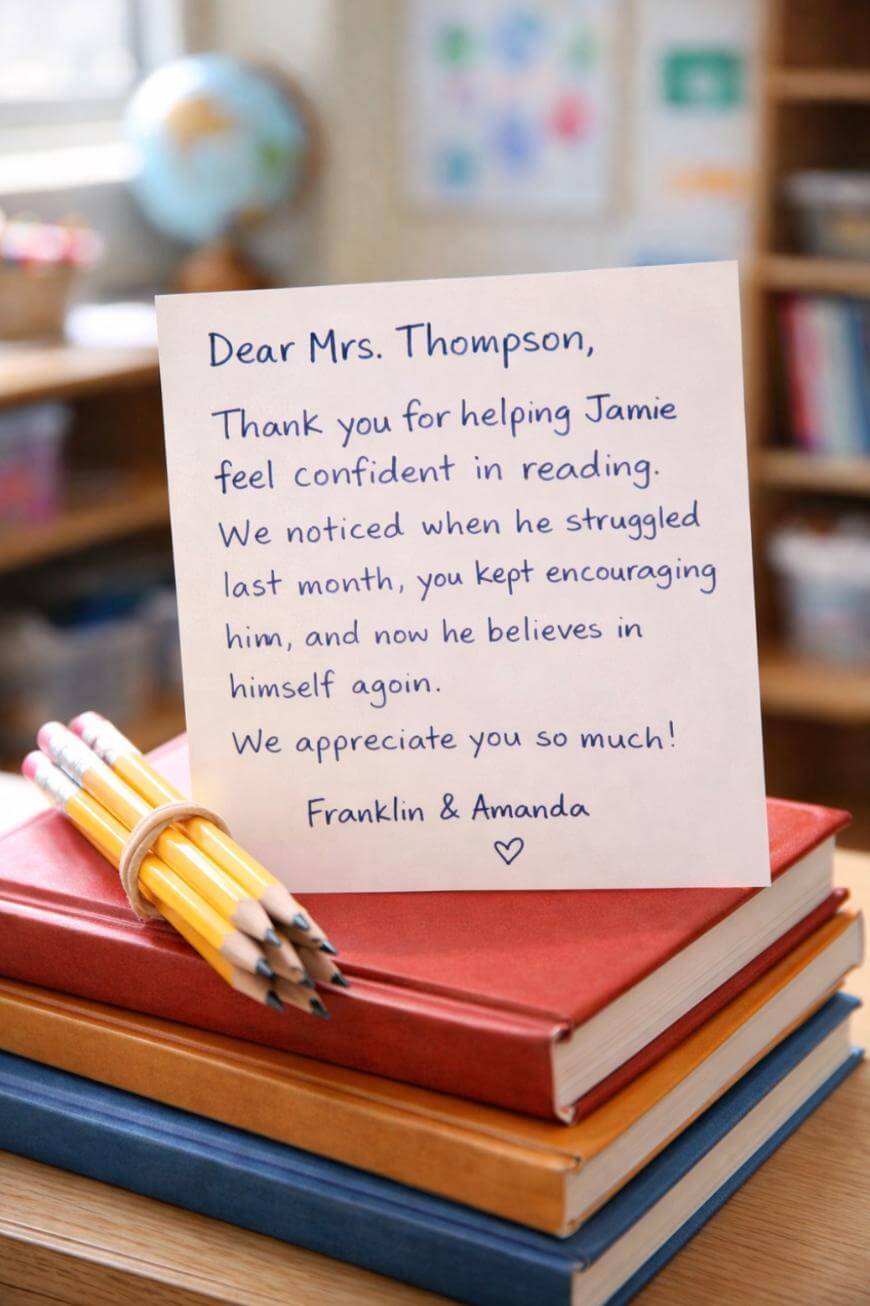 Dear Mrs. Thompson,
Thank you for helping Jamie
feel confident in reading.
We noticed when he struggled
last month, you kept encouraging
him, and now he believes in
himself agoin.
We appreciate you so much!
Franklin & Amanda